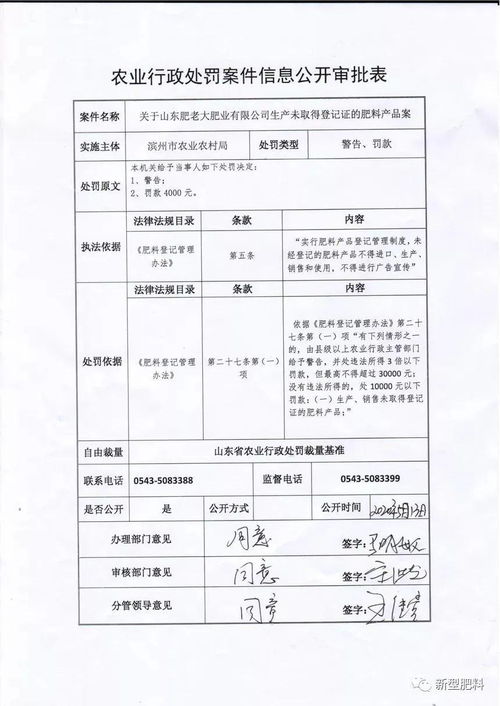 农业行政处罚案件信息公开审批表
案件名称 关于山东肥老大肥业有限公司生产未取得登记证的肥料产品案
实施主体 滨州市农业农村局 处罚类型 警告、罚款
处罚原文
本机关给予当事人如下处罚决定：
1、警告；
2、罚款 4000 元。
执法依据
法律法规目录 条款 内容
《肥料登记管理
办法》
第五条
“实行肥料产品登记管理制度，未
经登记的肥料产品不得进口、生产、
销售和使用，不得进行广告宣传”
处罚依据
法律法规目录 条款 内容
《肥料登记管理
办法》
第二十七条第（一）
项
依据《肥料登记管理办法》第二十
七条第（一）项“有下列情形之一
的，由县级以上农业行政主管部门
给予警告，并处违法所得 3 倍以下
罚款，但最高不得超过 30000 元；
没有违法所得的，处 10000 元以下
罚款：（一）生产、销售未取得登记
证的肥料产品；”
自由裁量 山东省农业行政处罚裁量基准
联系电话 0543-5083388 监督电话 0543-5083399
是否公开 是 公开方式 公开时间 2020年5月13日
办理部门意见 同意 签字：
审核部门意见 同意 签字：
分管领导意见 同意 签字：
新型肥料